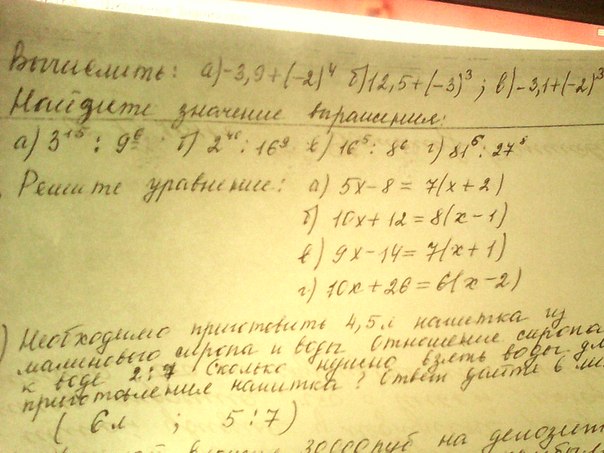 Вычислить: а) -3,9+(-2)⁴ б) 12,5+(-3)³; в) -3,1+(-2)³
Найдите значение выражения:
а) 3¹⁵ : 9⁶ б) 2⁴⁰ : 16⁹ в) 16⁵ : 8⁶ г) 81⁶ : 27⁸
Решите уравнение: а) 5x-8 = 7(x+2)
б) 10x+12 = 8(x-1)
в) 9x-14 = 7(x+1)
г) 10x+26 = 6(x-2)
) Необходимо приготовить 4,5 л напитка из
малинового сиропа и воды Отношение сиропа
к воде 2:7 Сколько нужно взять воды для
приготовления напитка? Ответ дайте в
( 6 л ; 5:7)
30000 руб на депозит